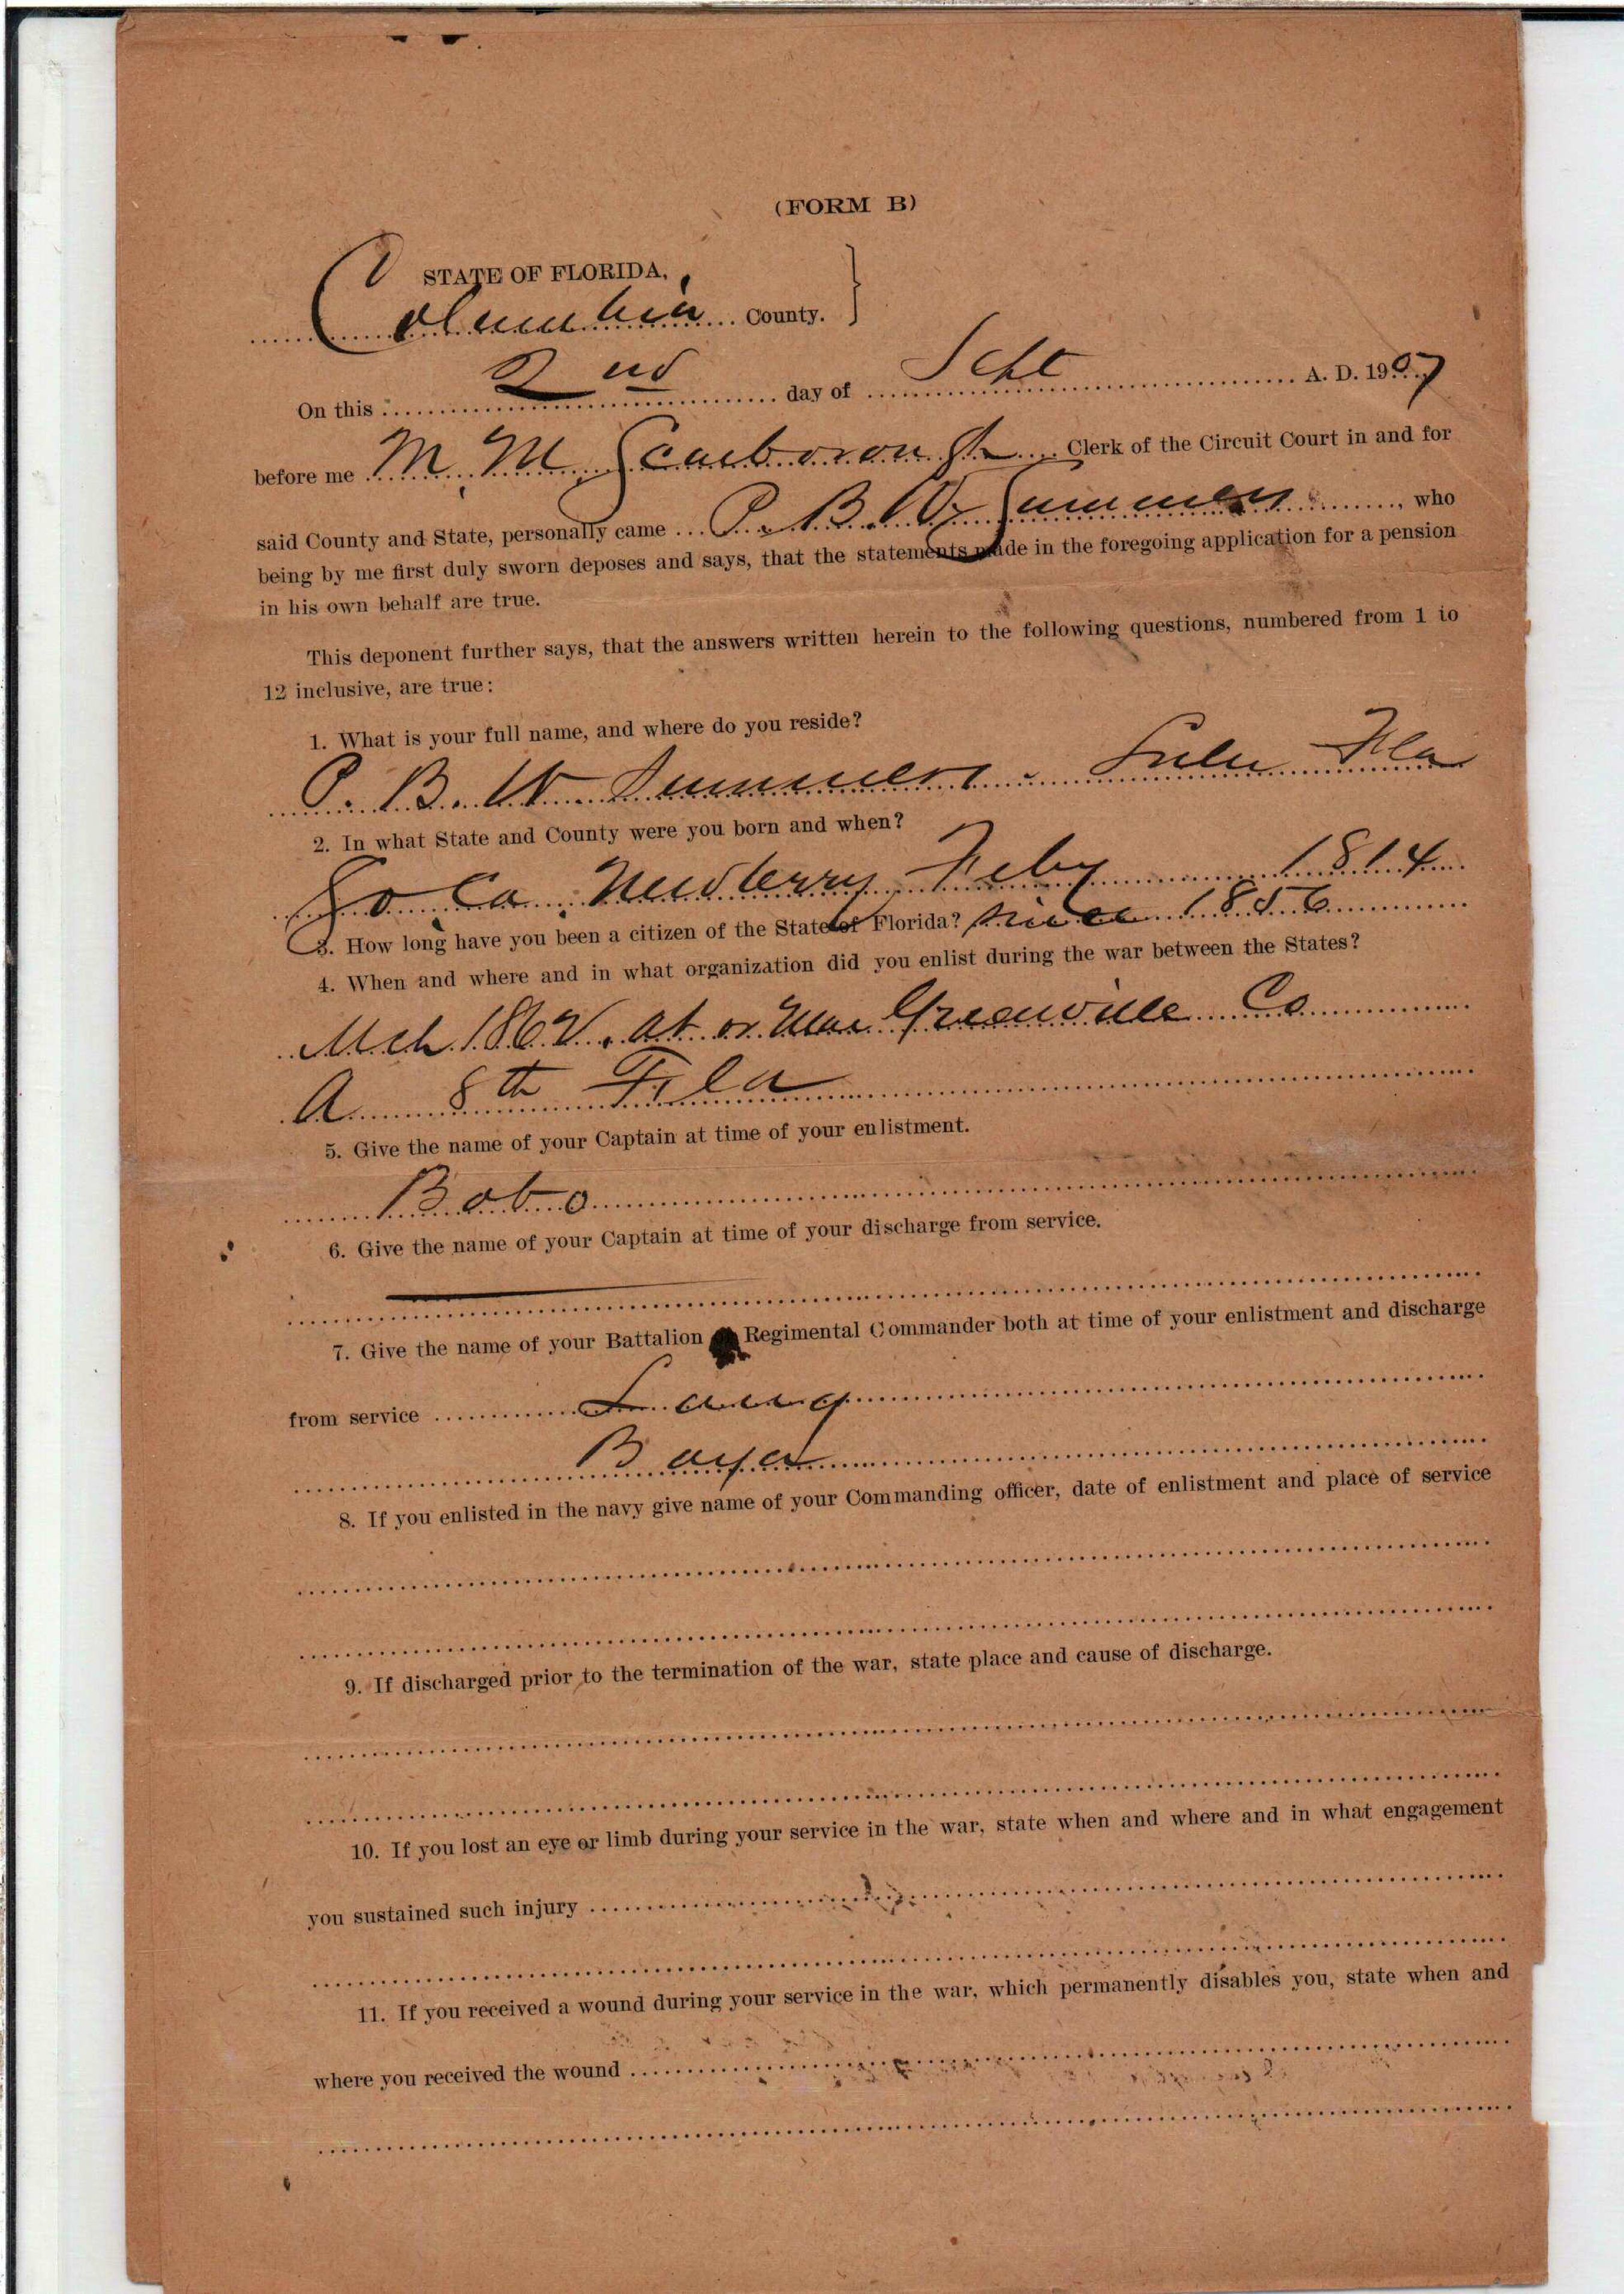 (FORM B)
STATE OF FLORIDA,
Columbia County.
On this 2nd day of Sept A. D. 1907
before me M. M. Scarborough Clerk of the Circuit Court in and for
said County and State, personally came P. B. W. Summers, who
being by me first duly sworn deposes and says, that the statements made in the foregoing application for a pension
in his own behalf are true.
This deponent further says, that the answers written herein to the following questions, numbered from 1 to
12 inclusive, are true:
1. What is your full name, and where do you reside?
P. B. W. Summers. Lulu Fla
2. In what State and County were you born and when?
So Ca. Newberry Feby 1814
3. How long have you been a citizen of the State of Florida? since 1856
4. When and where and in what organization did you enlist during the war between the States?
Mch 1862. at or near Greenville Co
A 8th Fla
5. Give the name of your Captain at time of your enlistment.
Bobo
6. Give the name of your Captain at time of your discharge from service.
7. Give the name of your Battalion Regimental Commander both at time of your enlistment and discharge
from service Lang
Baya
8. If you enlisted in the navy give name of your Commanding officer, date of enlistment and place of service
9. If discharged prior to the termination of the war, state place and cause of discharge.
10. If you lost an eye or limb during your service in the war, state when and where and in what engagement
you sustained such injury
11. If you received a wound during your service in the war, which permanently disables you, state when and
where you received the wound